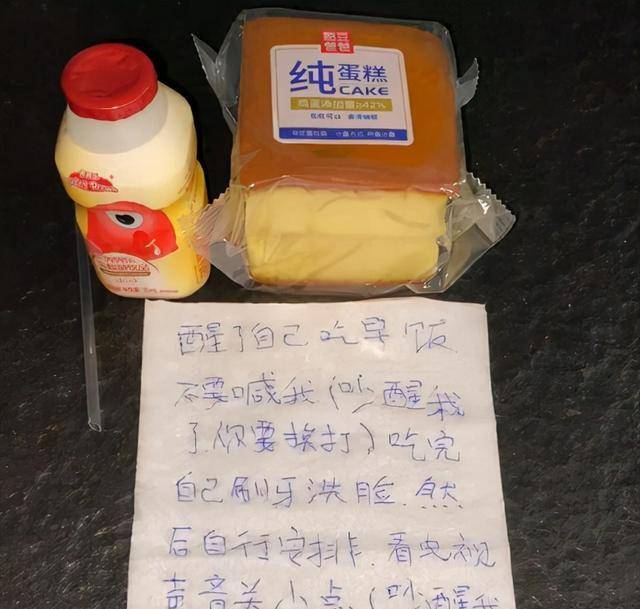 纯蛋糕
CAKE
醒了自己吃早饭
不要喊我(吵醒我
了你要挨打)吃完
自己刷牙洗脸.然
后自行安排.看电视
声音关小点(吵醒我